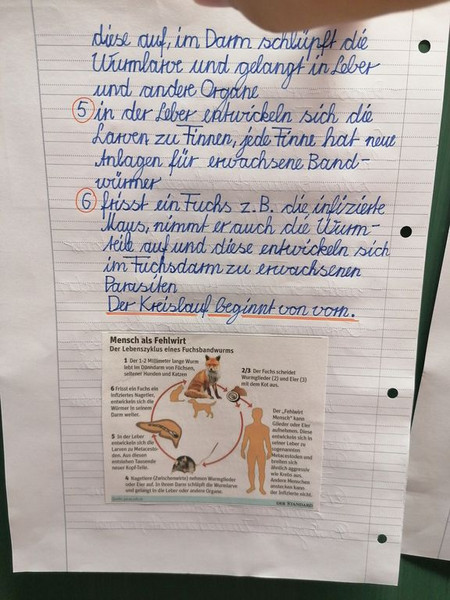 diese auf, im Darm schlüpft die
Wurmlarve und gelangt in Leber
und andere Organe
5 in der Leber entwickeln sich die
Larven zu Finnen, jede Finne hat neue
Anlagen für erwachsene Band-
würmer
6 frisst ein Fuchs z.B. die infizierte
Maus, nimmt er auch die Wurm-
teile auf und diese entwickeln sich
im Fuchsdarm zu erwachsenen
Parasiten
Der Kreislauf beginnt von vorn.
Mensch als Fehlwirt
Der Lebenszyklus eines Fuchsbandwurms
1 Der 1-2 Millimeter lange Wurm
lebt im Dünndarm von Füchsen,
seltener Hunden und Katzen
2/3 Der Fuchs scheidet
Wurmglieder (2) und Eier (3)
mit dem Kot aus.
6 Frisst ein Fuchs ein
infiziertes Nagetier,
entwickeln sich die
Würmer in seinem
Darm weiter.
Der „Fehlwirt
Mensch" kann
Glieder oder Eier
aufnehmen. Diese
entwickeln sich in
seiner Leber zu
sogenannten
Metacestoden und
breiten sich
ähnlich aggressiv
wie Krebs aus.
Andere Menschen
anstecken kann
der Infizierte nicht.
5 In der Leber
entwickeln sich die
Larven zu Metacesto-
den. Aus diesen
entstehen Tausende
neuer Kopf-Teile.
4 Nagetiere (Zwischenwirte) nehmen Wurmglieder
oder Eier auf. In ihrem Darm schlüpft die Wurmlarve
und gelangt in die Leber oder andere Organe.
DER STANDARD